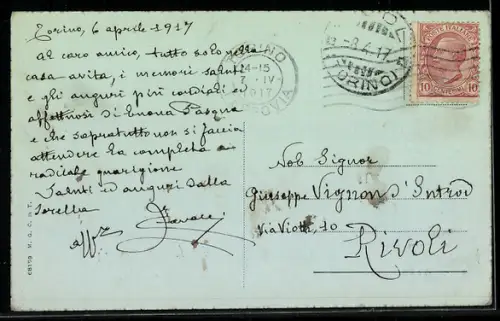 Torino, 6 aprile 1917
al caro amico, tutto solo nella
casa avita, i memori saluti
e gli auguri più cordiali ed
affettuosi di buona Pasqua
e che sopratutto non si faccia
attendere la completa e
radicale guarigione.
Saluti ed auguri dalla
sorella
aff.
TORINO
14-15
7 IV
1917
-8.4.17
TORINO
POSTE ITALIANE
10 CENTESIMI 10
Nob Signor
Giuseppe Vignon d'Introd
Via Viotti, 10
Rivoli
68159 M. G. C. M. T.